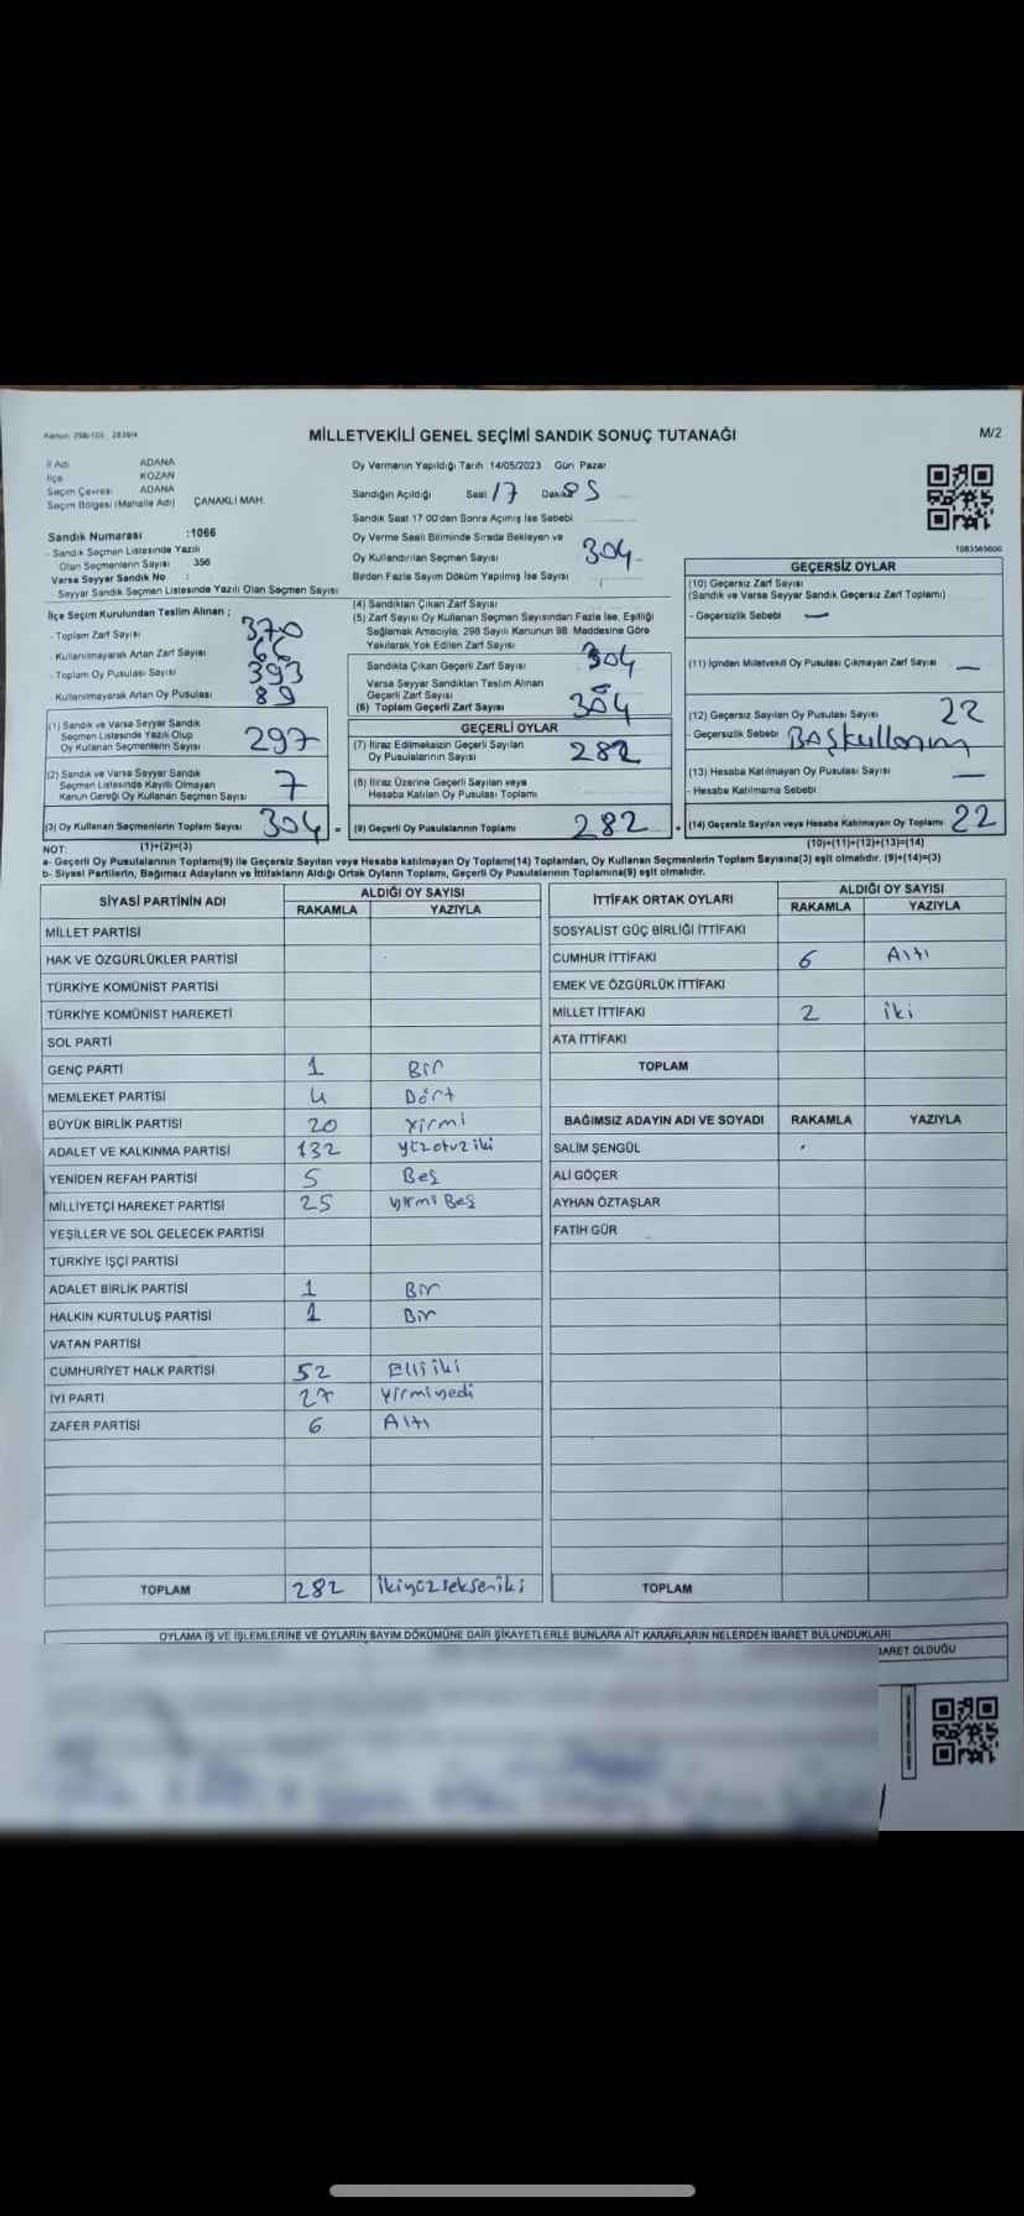 Kanun: 298/105, 2839/4
MİLLETVEKİLİ GENEL SEÇİMİ SANDIK SONUÇ TUTANAĞI
M/2
İl Adı ADANA
İlçe KOZAN
Seçim Çevresi ADANA
Seçim Bölgesi (Mahalle Adı) ÇANAKLI MAH.
Sandık Numarası :1066
- Sandık Seçmen Listesinde Yazılı
Olan Seçmenlerin Sayısı 356
Varsa Seyyar Sandık No :
- Seyyar Sandık Seçmen Listesinde Yazılı Olan Seçmen Sayısı
Oy Vermenin Yapıldığı Tarih 14/05/2023 Gün Pazar
Sandığın Açıldığı Saat 17 Dakika 05
Sandık Saat 17 00'den Sonra Açılmış İse Sebebi
Oy Verme Saati Bitiminde Sırada Bekleyen ve
Oy Kullandırılan Seçmen Sayısı 304
Birden Fazla Sayım Döküm Yapılmış İse Sayısı
1083565600
İlçe Seçim Kurulundan Teslim Alınan ;
- Toplam Zarf Sayısı 370
- Kullanılmayarak Artan Zarf Sayısı 66
- Toplam Oy Pusulası Sayısı 393
- Kullanılmayarak Artan Oy Pusulası 89
(1) Sandık ve Varsa Seyyar Sandık
Seçmen Listesinde Yazılı Olup
Oy Kullanan Seçmenlerin Sayısı 297
(2) Sandık ve Varsa Seyyar Sandık
Seçmen Listesinde Kayıtlı Olmayan
Kanun Gereği Oy Kullanan Seçmen Sayısı 7
(3) Oy Kullanan Seçmenlerin Toplam Sayısı 304 =
(4) Sandıktan Çıkan Zarf Sayısı
(5) Zarf Sayısı Oy Kullanan Seçmen Sayısından Fazla İse, Eşitliği
Sağlamak Amacıyla, 298 Sayılı Kanunun 98. Maddesine Göre
Yakılarak Yok Edilen Zarf Sayısı
Sandıkta Çıkan Geçerli Zarf Sayısı 304
Varsa Seyyar Sandıktan Teslim Alınan
Geçerli Zarf Sayısı –
(6) Toplam Geçerli Zarf Sayısı 304
GEÇERLİ OYLAR
(7) İtiraz Edilmeksizin Geçerli Sayılan
Oy Pusulalarının Sayısı 282
(8) İtiraz Üzerine Geçerli Sayılan veya
Hesaba Katılan Oy Pusulası Toplamı
(9) Geçerli Oy Pusulalarının Toplamı 282 +
GEÇERSİZ OYLAR
(10) Geçersiz Zarf Sayısı
(Sandık ve Varsa Seyyar Sandık Geçersiz Zarf Toplamı)
- Geçersizlik Sebebi —
(11) İçinden Milletvekili Oy Pusulası Çıkmayan Zarf Sayısı —
(12) Geçersiz Sayılan Oy Pusulası Sayısı 22
- Geçersizlik Sebebi BAŞkullanım
(13) Hesaba Katılmayan Oy Pusulası Sayısı —
- Hesaba Katılmama Sebebi
(14) Geçersiz Sayılan veya Hesaba Katılmayan Oy Toplamı 22
NOT: (1)+(2)=(3) (10)+(11)+(12)+(13)=(14)
a- Geçerli Oy Pusulalarının Toplamı(9) ile Geçersiz Sayılan veya Hesaba katılmayan Oy Toplamı(14) Toplamları, Oy Kullanan Seçmenlerin Toplam Sayısına(3) eşit olmalıdır. (9)+(14)=(3)
b- Siyasi Partilerin, Bağımsız Adayların ve İttifakların Aldığı Ortak Oyların Toplamı, Geçerli Oy Pusulalarının Toplamına(9) eşit olmalıdır.
SİYASİ PARTİNİN ADI ALDIĞI OY SAYISI
RAKAMLA YAZIYLA
MİLLET PARTİSİ
HAK VE ÖZGÜRLÜKLER PARTİSİ
TÜRKİYE KOMÜNİST PARTİSİ
TÜRKİYE KOMÜNİST HAREKETİ
SOL PARTİ
GENÇ PARTİ 1 Bir
MEMLEKET PARTİSİ 4 Dört
BÜYÜK BİRLİK PARTİSİ 20 Yirmi
ADALET VE KALKINMA PARTİSİ 132 yüzotuziki
YENİDEN REFAH PARTİSİ 5 Beş
MİLLİYETÇİ HAREKET PARTİSİ 25 yirmi Beş
YEŞİLLER VE SOL GELECEK PARTİSİ
TÜRKİYE İŞÇİ PARTİSİ
ADALET BİRLİK PARTİSİ 1 Bir
HALKIN KURTULUŞ PARTİSİ 1 Bir
VATAN PARTİSİ
CUMHURİYET HALK PARTİSİ 52 Elli iki
İYİ PARTİ 27 Yirmiyedi
ZAFER PARTİSİ 6 Altı
TOPLAM 282 İkiyüzsekseniki
İTTİFAK ORTAK OYLARI ALDIĞI OY SAYISI
RAKAMLA YAZIYLA
SOSYALİST GÜÇ BİRLİĞİ İTTİFAKI
CUMHUR İTTİFAKI 6 Altı
EMEK VE ÖZGÜRLÜK İTTİFAKI
MİLLET İTTİFAKI 2 iki
ATA İTTİFAKI
TOPLAM
BAĞIMSIZ ADAYIN ADI VE SOYADI RAKAMLA YAZIYLA
SALİM ŞENGÜL
ALİ GÖÇER
AYHAN ÖZTAŞLAR
FATİH GÜR
TOPLAM
OYLAMA İŞ VE İŞLEMLERİNE VE OYLARIN SAYIM DÖKÜMÜNE DAİR ŞİKAYETLERLE BUNLARA AİT KARARLARIN NELERDEN İBARET BULUNDUKLARI
BARET OLDUĞU